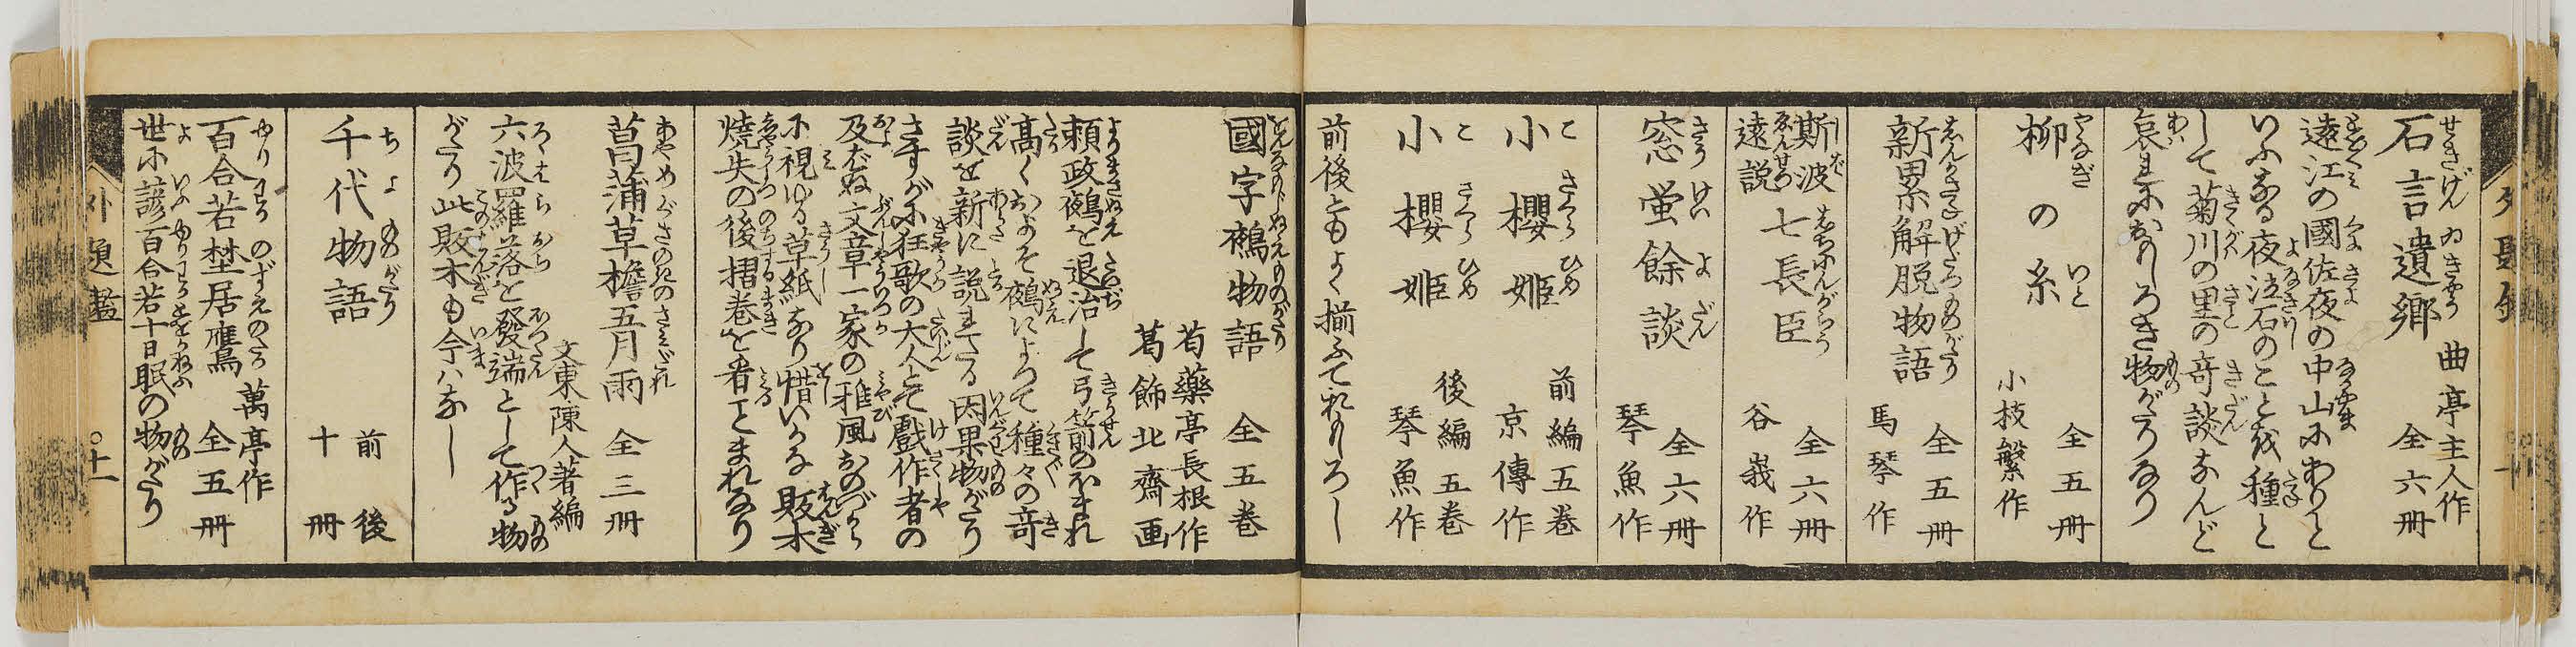 石言遺郷 曲亭主人作 全六冊
遠江の國佐夜の中山にありと
いふなる夜泣石のことを種と
して菊川の里の奇談なんど
哀れにおもしろき物がたりなり
柳の糸 小枝繁作 全五冊
新累解脱物語 馬琴作 全五冊
斯波遠説七長臣 谷峩作 全六冊
窓蛍餘談 琴魚作 全六冊
小櫻姫 前編五巻 京傳作
小櫻姫 後編五巻 琴魚作
前後ともよく揃ふておもしろし
國字鵺物語 全五巻
芍藥亭長根作
葛飾北齋画
頼政鵺を退治して弓箭のほまれ
髙くおよそ鵺によつて種々の奇
談を新に説れたる因果物がたり
さすが狂歌の大人とて戯作者の
及ばぬ文章一家の雅風おのづから
に視ゆる草紙なり惜いかな販木
焼失の後摺巻を看ことまれなり
菖蒲草檐五月雨 全三冊
文東陳人著編
六波羅落を發端として作る物
がたり此販木も今ハなし
千代物語 前後十冊
百合若埜居鷹 萬亭作 全五冊
世に諺百合若十日眠の物がたり
外題鑑
〇十一